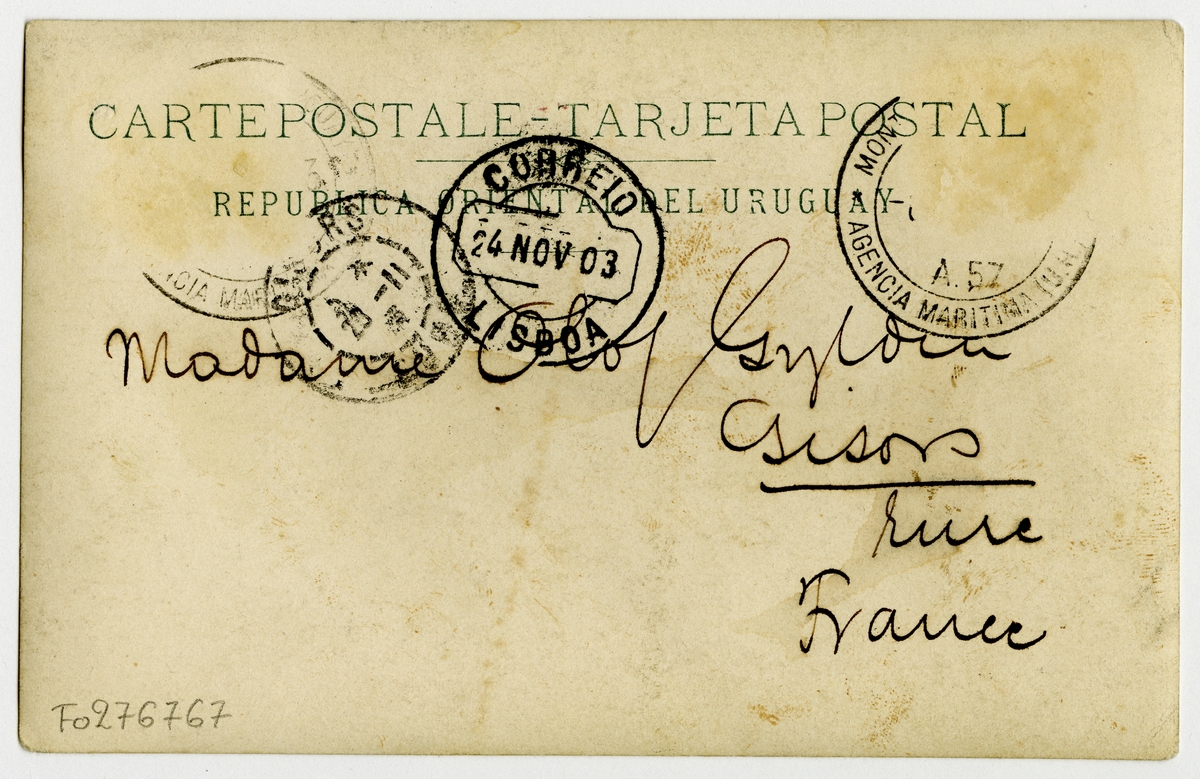 CARTE POSTALE - TARJETA POSTAL
REPUBLICA ORIENTAL DEL URUGUAY
CORREIO
24 NOV 03
LISBOA
MONT
A. 57
AGENCIA MARITIMA (U.R.
CIA MAR
GISORS
28 -11
Madame Olof Gyldén
Gisors
Eure
France
Fo276767